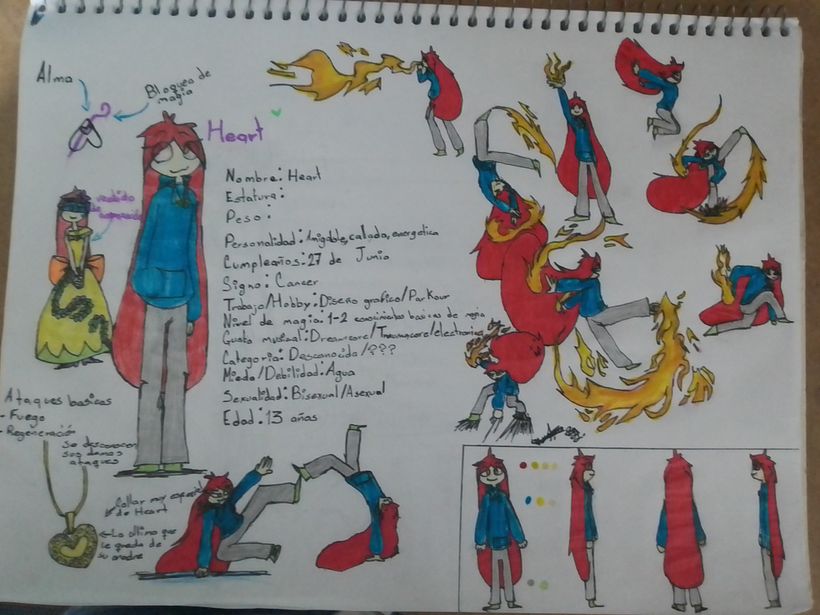 Alma
Bloqueo de
magia
Heart
vestido
de
Nombre: Heart
Estatura:
Peso:
Personalidad: Amigable, callada, energetica
Cumpleaños: 27 de Junio
Signo: Cancer
Trabajo/Hobby: Diseño grafico/Parkour
Nivel de magia: 1-2 conocimientos basicos de magia
Gusto musical: Dreamcore/Traumacore/electronica
Categoria: Desconocida/???
Miedo/Debilidad: Agua
Sexualidad: Bisexual/Asexual
Edad: 13 años
Ataques basicos
- Fuego
- Regeneración
Se desconocen
sus demas
ataques
Collar muy especial
de Heart
Lo ultimo que
le queda de
su madre